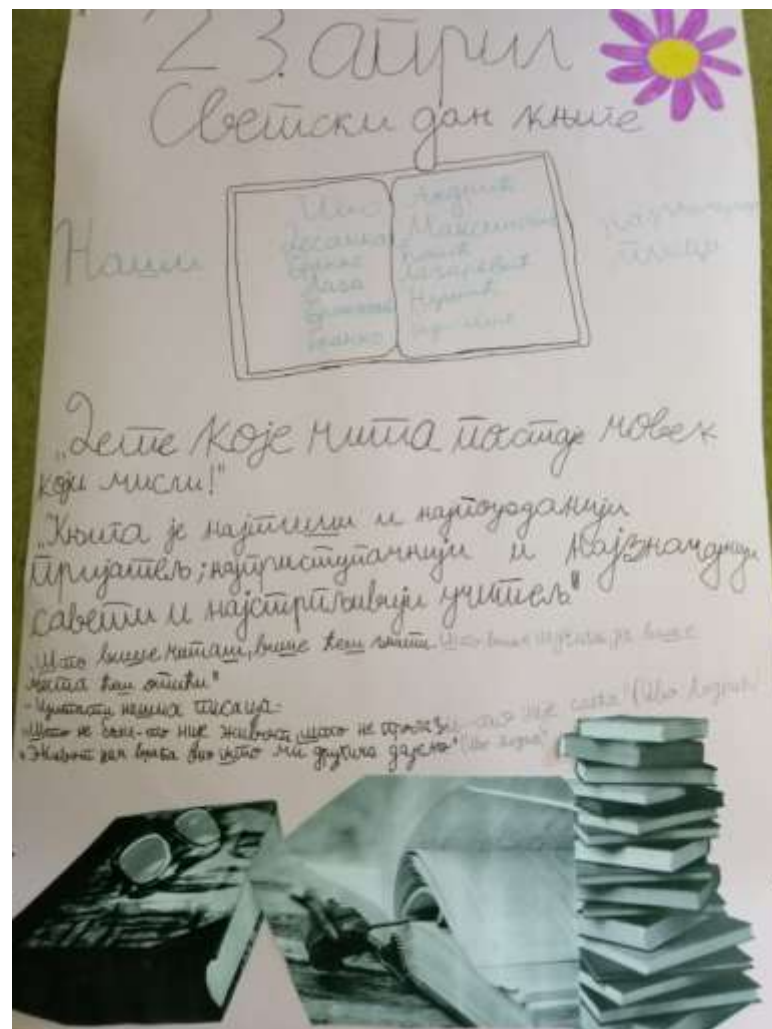 23. април
Светски дан књиге
Наши
Иво Андрић
Десанка Максимовић
Бранко Ћопић
Лаза Лазаревић
Бранислав Нушић
Бранко
писци
„Дете које чита постаје човек
који мисли!"
„Књига је најтиши и најпоузданији
пријатељ; најприступачнији и најзначајнији
савети и најстрпљивији учитељ"
„Што више читаш, више ћеш знати. Што више научиш, на више
места ћеш отићи"
- Цитати наших писаца:
„Што не боли - то није живот, што не пролази - није срећа" (Иво Андрић)
„Живот нам враћа оно што ми другима дајемо" (Иво Андрић)